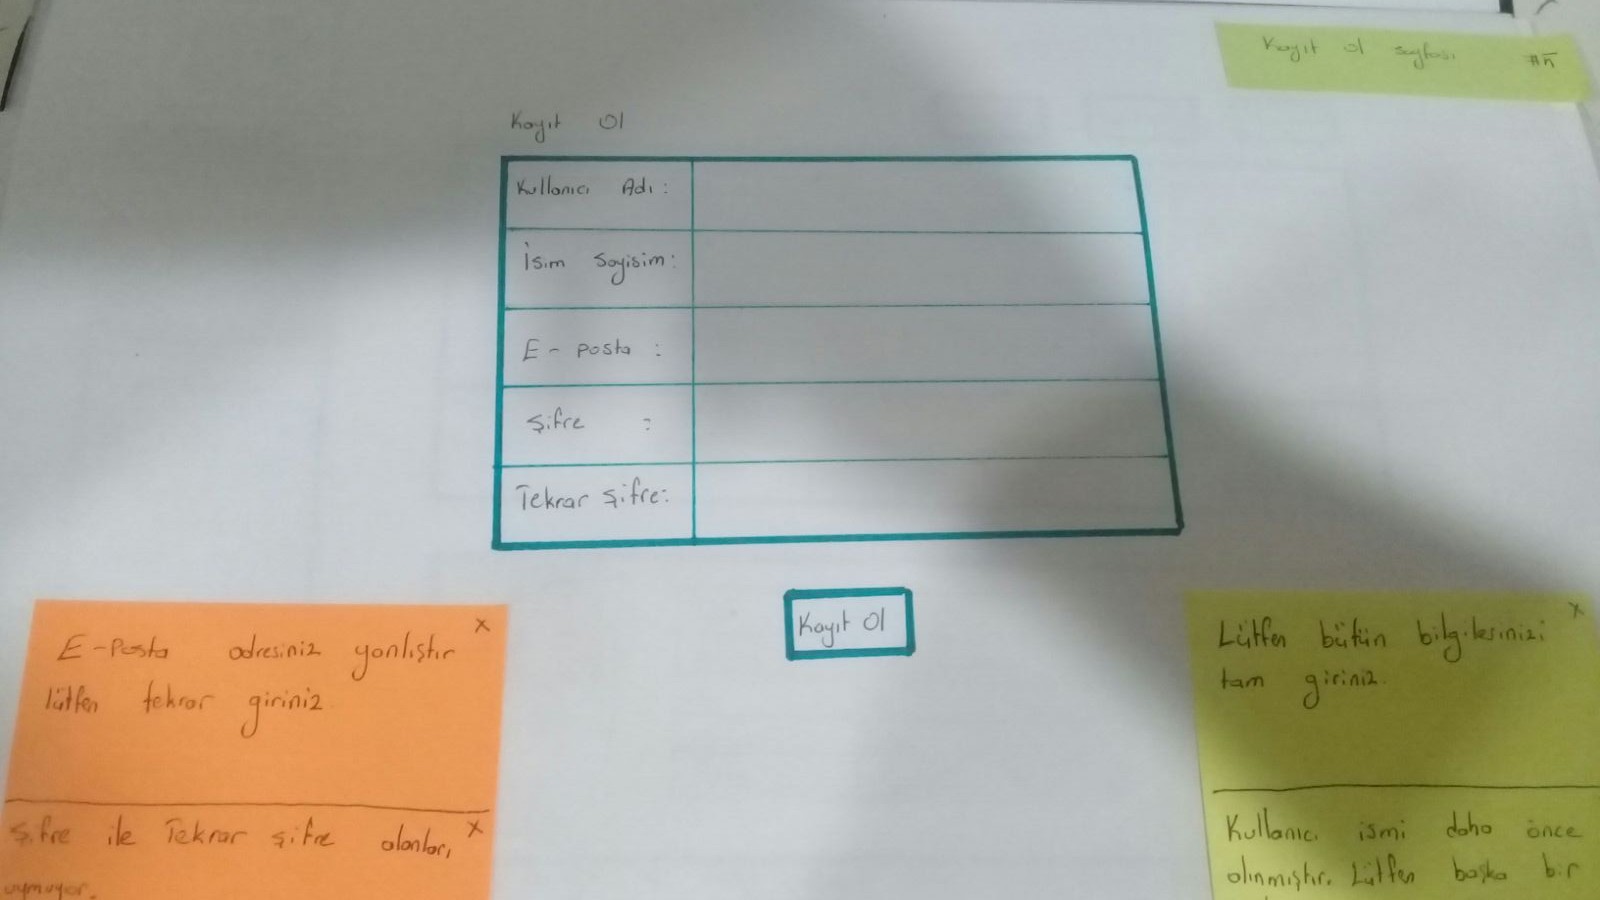 Kayıt Ol sayfası
Kayıt Ol
Kullanıcı Adı:
İsim Soyisim:
E-posta :
Şifre :
Tekrar Şifre:
Kayıt Ol
E-Posta adresiniz yanlıştır x
lütfen tekrar giriniz.
Şifre ile Tekrar şifre alanları x
uymuyor.
Lütfen bütün bilgilerinizi x
tam giriniz.
Kullanıcı ismi daha önce
alınmıştır. Lütfen başka bir